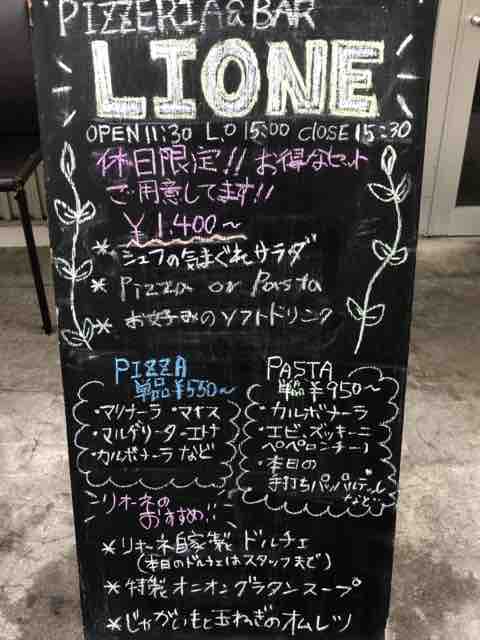 PIZZERIA & BAR
LIONE
OPEN 11:30 L.O 15:00 CLOSE 15:30
休日限定!! お得なセット
ご用意してます!!
¥1.400～
* シェフの気まぐれサラダ
* Pizza or Pasta
* お好みのソフトドリンク
PIZZA
単品¥550～
・マリナーラ ・マオス
・マルゲリータ ・エトナ
・カルボナーラ など
PASTA
単品¥950～
・カルボナーラ
・エビ・ズッキーニ
ペペロンチーノ
・本日の
手打ちパッパルデッレ
など…
リオーネの
おすすめ!!
* リオーネ自家製 ドルチェ
(本日のドルチェはスタッフまで)
* 特製オニオングラタンスープ
* じゃがいもと玉ねぎのオムレツ